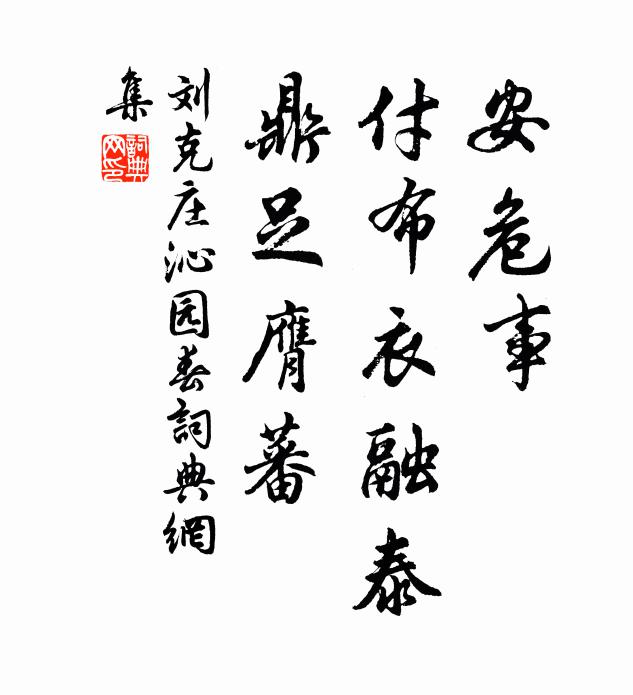 安危事
付布衣融泰
鼎足膺蕃
刘克庄沁园春詞典網
集
詞典网印